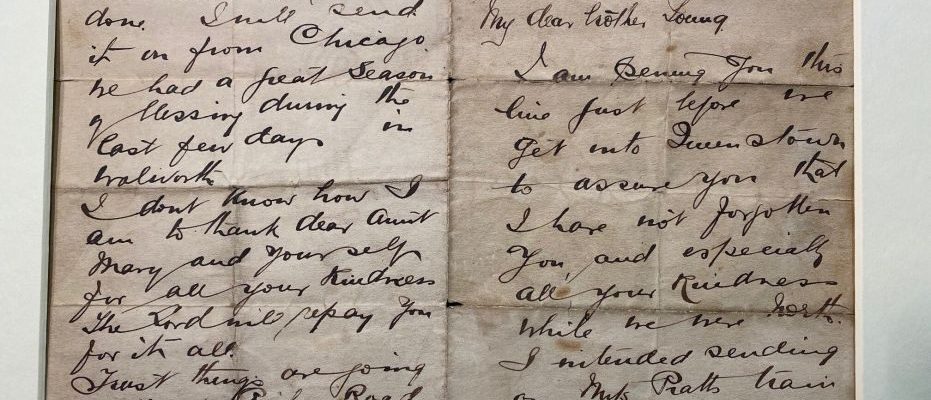 done. I will send
it on from Chicago.
we had a great season
of blessing during the
last few days in
Walworth.
I dont know how I
am to thank dear Aunt
Mary and yourself
for all your kindness
The Lord will repay you
for it all.
Trust things are going
Road
My dear brother Young.
I am penning you this
line just before we
get into Queenstown
to assure you that
I have not forgotten
you and especially
all your kindness
while we were North.
I intended sending
on Mrs Pratts train